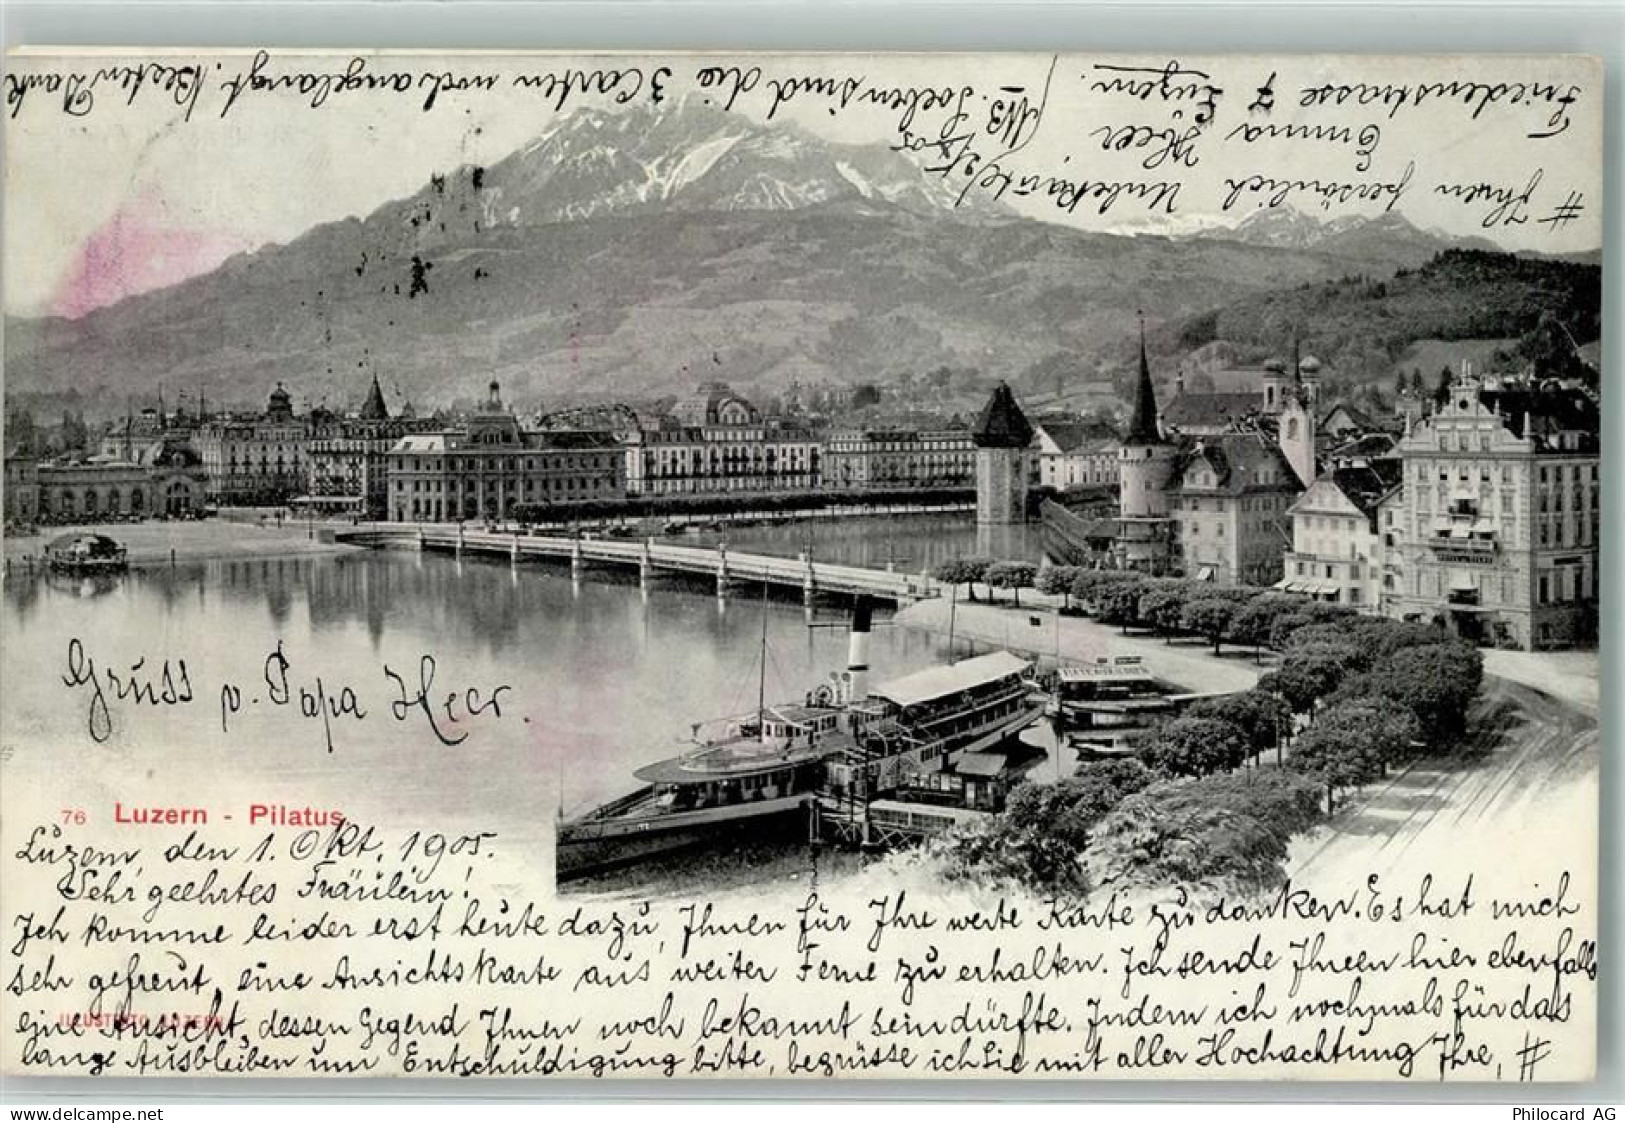 Gruss v. Papa Heer.
76 Luzern - Pilatus
Luzern, den 1. Okt. 1905.
Sehr geehrtes Fräulein!
Ich komme leider erst heute dazu, Ihnen für Ihre werte Karte zu danken. Es hat mich
sehr gefreut, eine Ansichtskarte aus weiter Ferne zu erhalten. Ich sende Ihnen hier ebenfalls
eine Ansicht, dessen Gegend Ihnen noch bekannt sein dürfte. Indem ich nochmals für das
lange Ausbleiben um Entschuldigung bitte, begrüsse ich Sie mit aller Hochachtung Ihre, #
# Ihnen persönlich Unbekannte
Emma Heer
Friedenstrasse 7 Luzern.
NB. Soeben sind die 3 Carten angelangt. Besten Dank
luzern.delcampe.net
Philocard AG